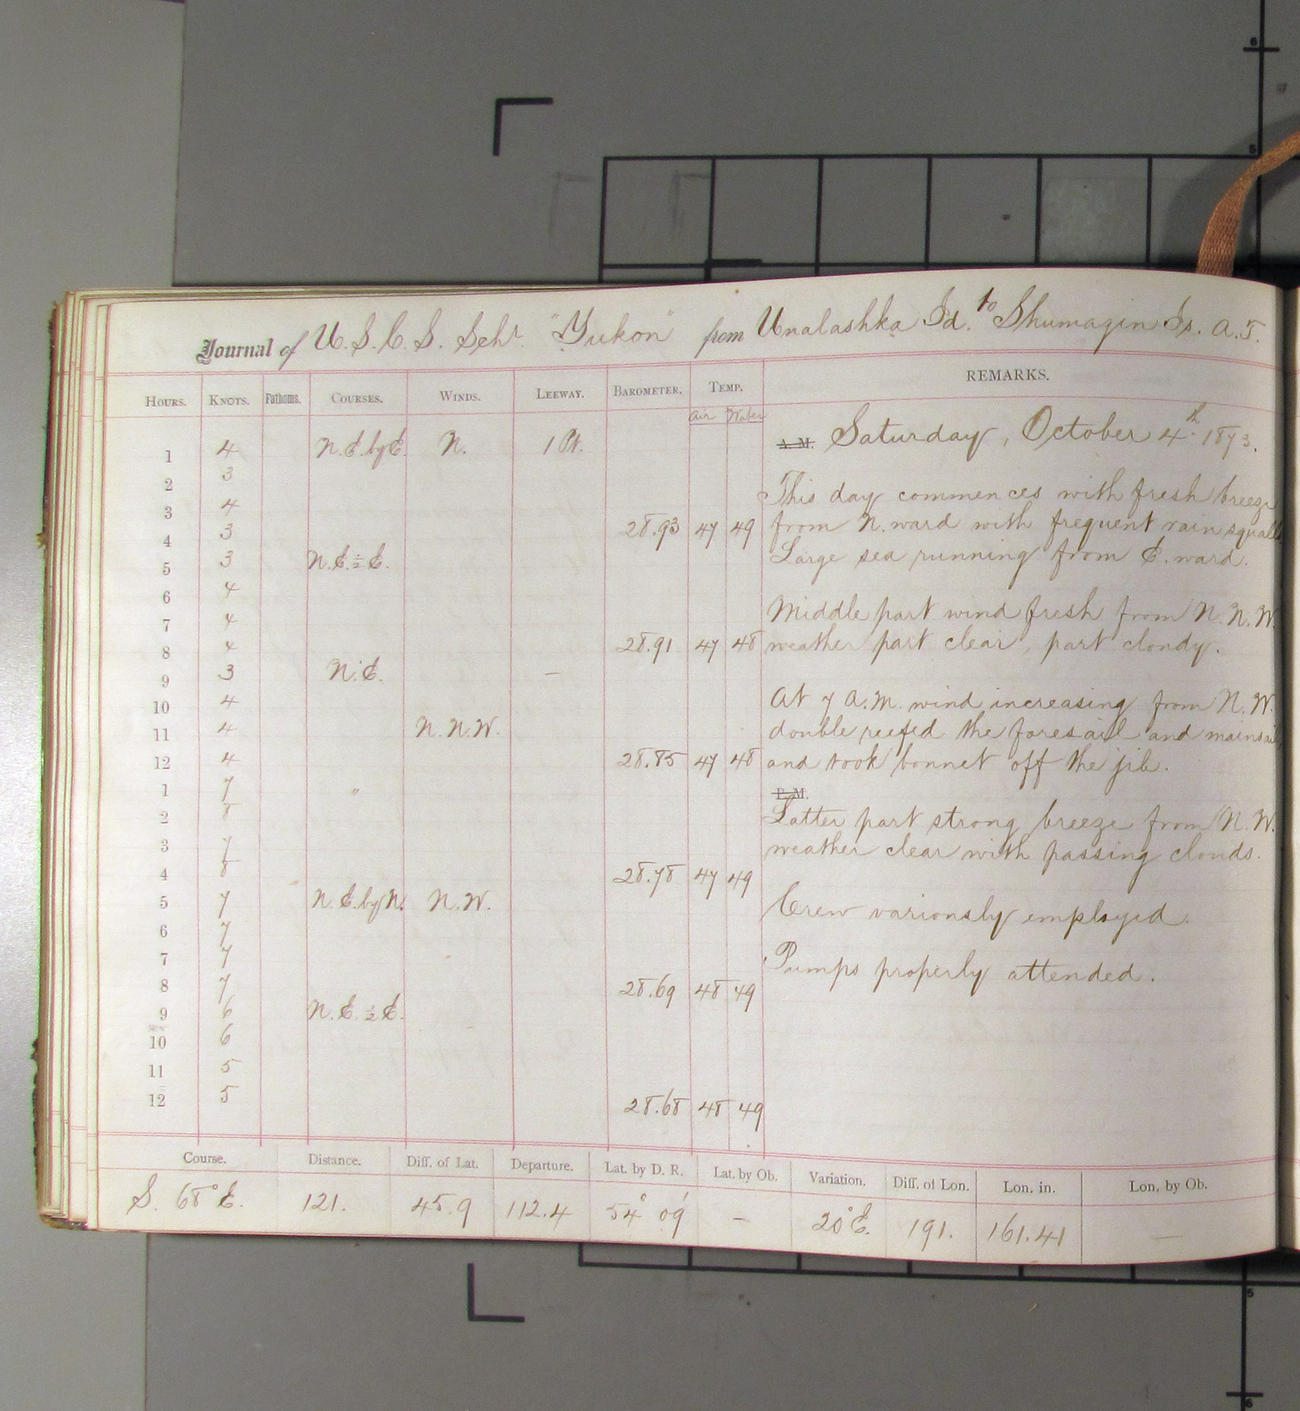 Journal of U.S.C.S. Schr. "Yukon" from Unalashka Id. to Shumagin Is. A.T.
HOURS. KNOTS. Fathoms. COURSES. WINDS. LEEWAY. BAROMETER. TEMP. REMARKS.
Air Water
A.M. Saturday, October 4th 1873.
1 4 N.E. by E. N. 1 Pt.
2 3
This day commences with fresh breeze
3 4
from N. ward with frequent rain squalls
4 3 28.93 47 49
Large sea running from E. ward.
5 3 N.E. ½ E.
6 4
Middle part wind fresh from N.N.W.
7 4
weather part clear, part cloudy.
8 4 28.91 47 48
9 3 N.E. —
10 4
At 7 A.M. wind increasing from N.W.
11 4 N.N.W.
double reefed the foresail and mainsail,
12 4 28.85 47 48
and took bonnet off the jib.
P.M.
1 7 "
2 8
Latter part strong breeze from N.W.
3 7
weather clear with passing clouds.
4 8 28.78 47 49
5 7 N.E. by N. N.W.
Crew variously employed.
6 7
7 7
Pumps properly attended.
8 7 28.69 48 49
9 6 N.E. ½ E.
10 6
11 5
12 5 28.68 48 49
Course. Distance. Diff. of Lat. Departure. Lat. by D. R. Lat. by Ob. Variation. Diff. of Lon. Lon. in. Lon. by Ob.
S. 68° E. 121. 45.9 112.4 54° 09' — 20° E. 191. 161.41 —
6
5
5
6